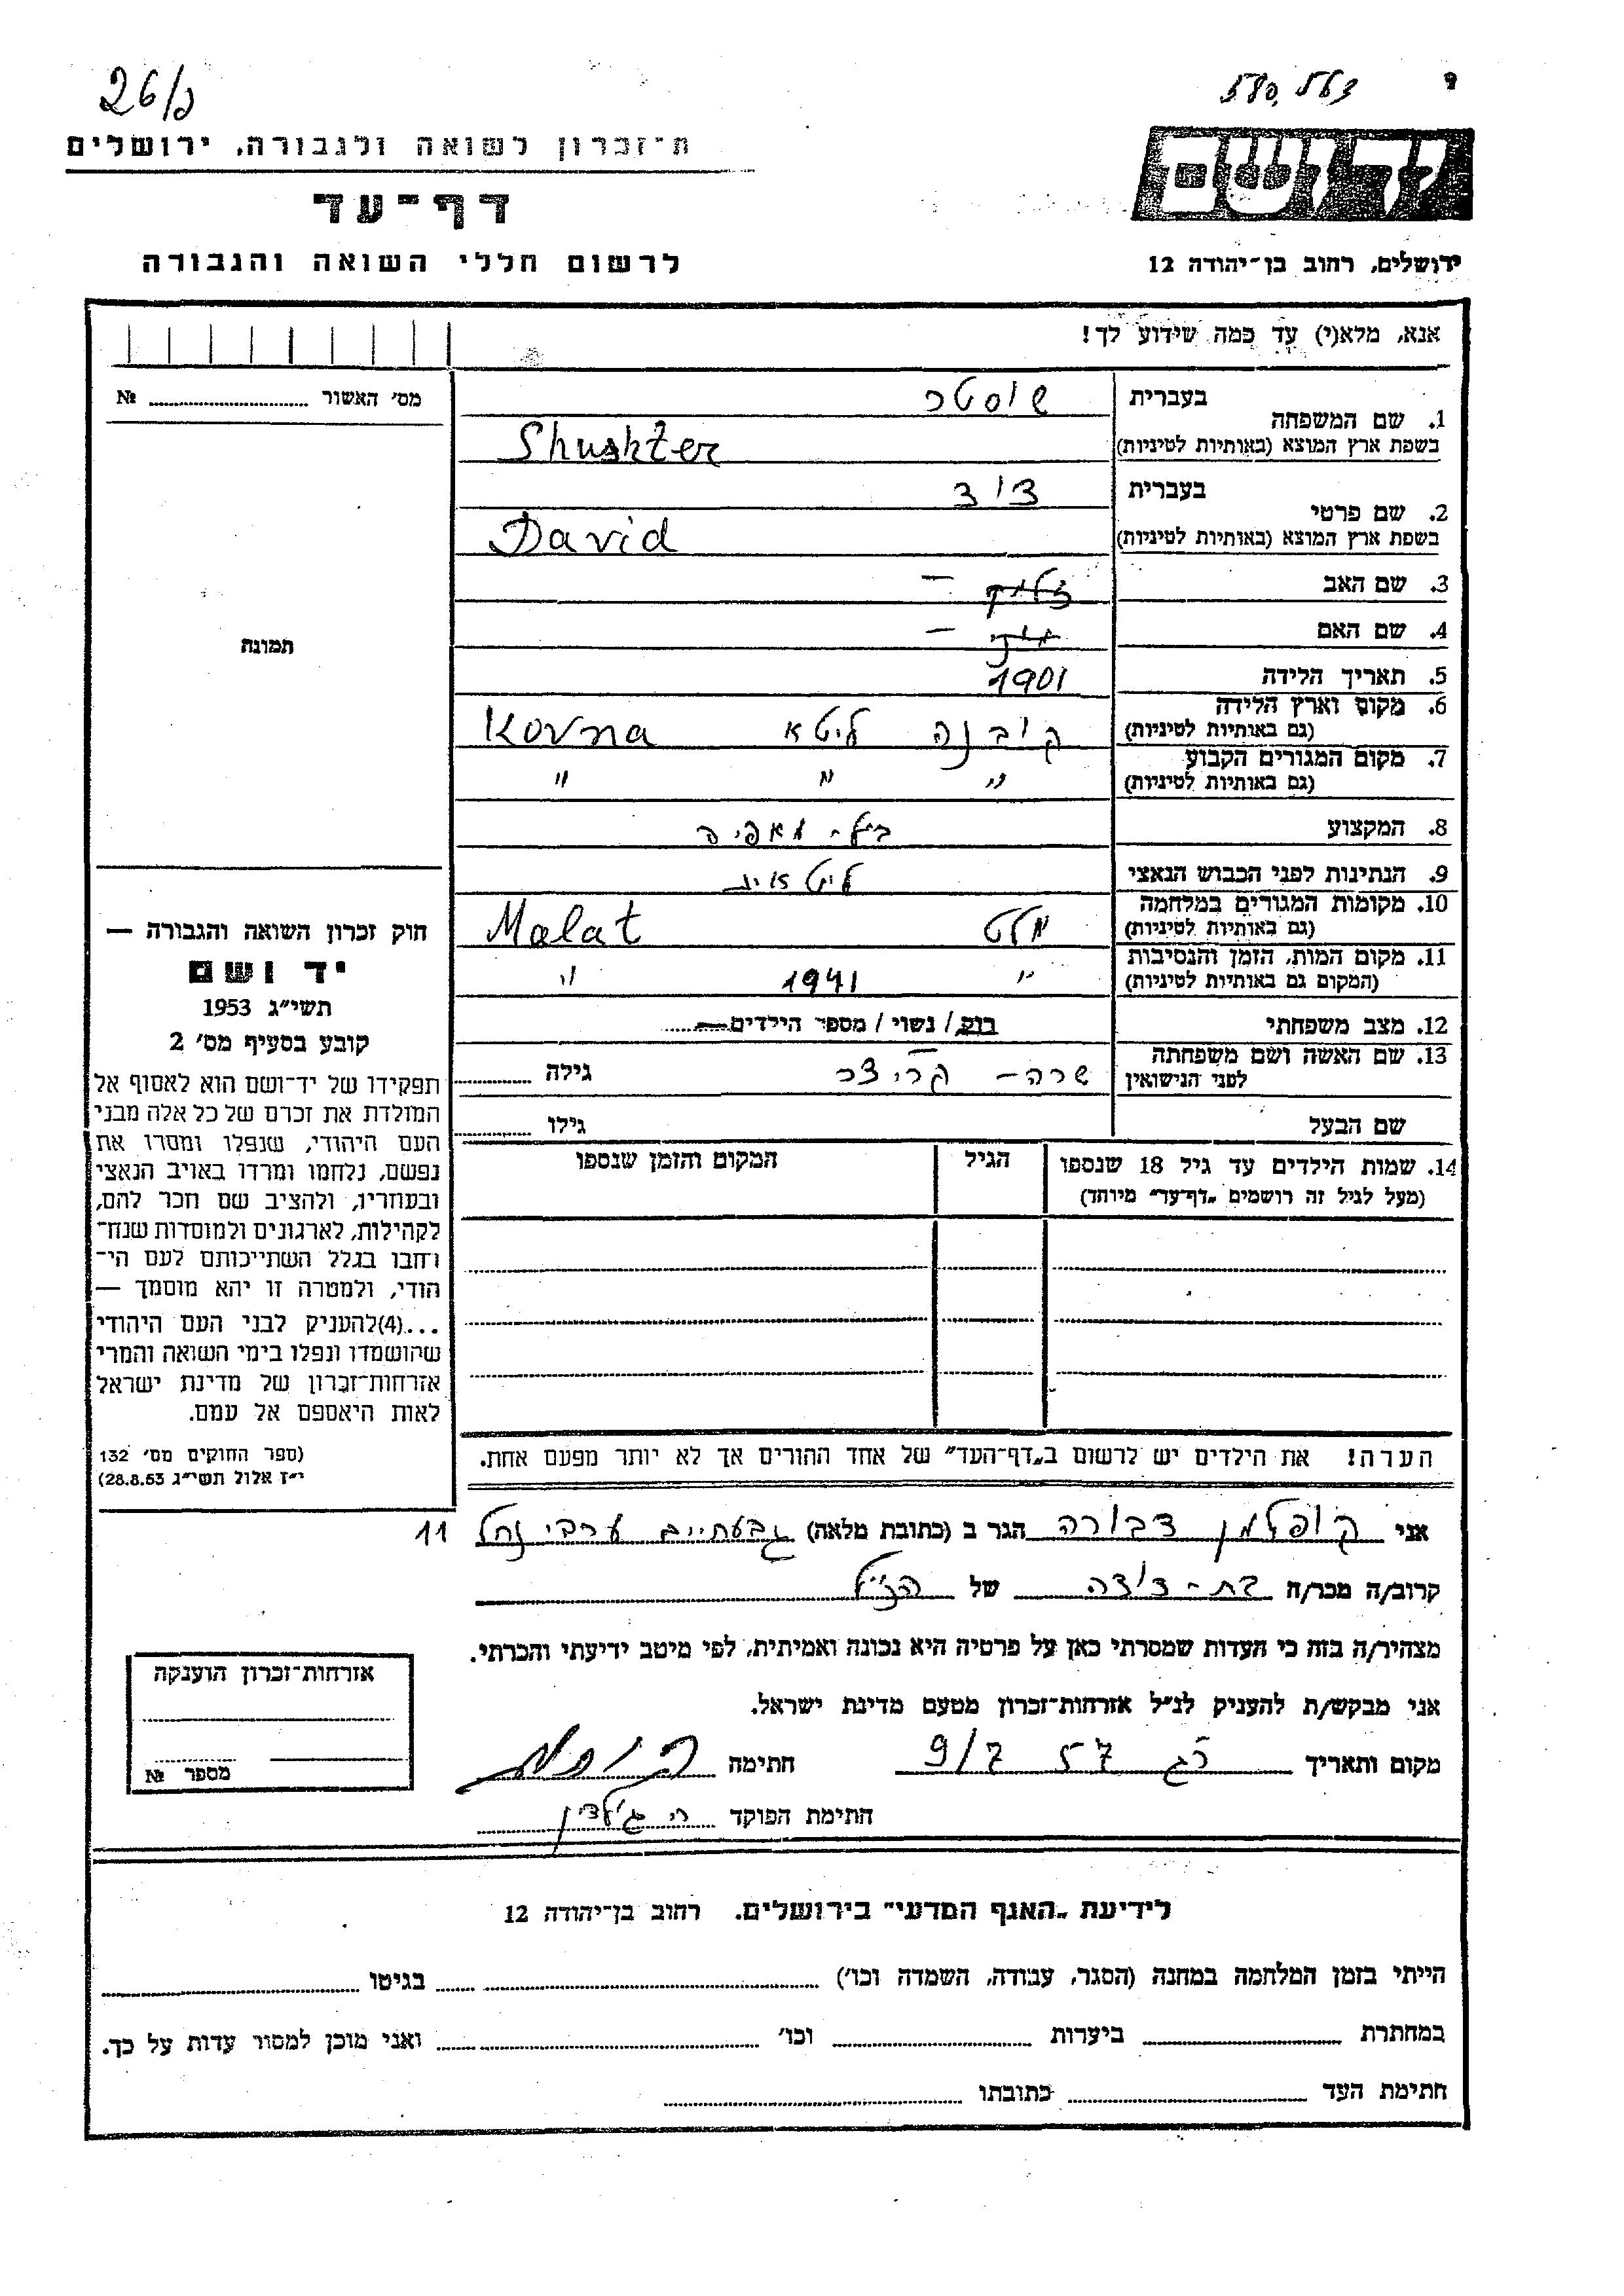 26/נ
580,563
ת-זכרון לשואה ולגבורה, ירושלים
יד ושם
דף-עד
לרשום חללי השואה והגבורה
ירושלים, רחוב בן-יהודה 12
אנא, מלא(י) עד כמה שידוע לך!
מס' האשור № 
1. שם המשפחה בעברית שוסטר
בשפת ארץ המוצא (באותיות לטיניות) Shuskter
2. שם פרטי בעברית דוד
בשפת ארץ המוצא (באותיות לטיניות) David
3. שם האב –
4. שם האם –
5. תאריך הלידה 1901
6. מקום וארץ הלידה (גם באותיות לטיניות) קובנה ליטא Kovna
7. מקום המגורים הקבוע (גם באותיות לטיניות) " " "
8. המקצוע בעל-מאפיה
9. הנתינות לפני הכבוש הנאצי ליטאית
10. מקומות המגורים במלחמה (גם באותיות לטיניות) מלט Malat
11. מקום המות, הזמן והנסיבות (המקום גם באותיות לטיניות) " 1941 "
12. מצב משפחתי רוק/ נשוי/ מספר הילדים —
13. שם האשה ושם משפחתה לפני הנישואין שרה - גילה
שם הבעל גילו
14. שמות הילדים עד גיל 18 שנספו הגיל המקום והזמן שנספו
(מעל לגיל זה רושמים „דף-עד" מיוחד)
הערה! את הילדים יש לרשום ב„דף-העד" של אחד ההורים אך לא יותר מפעם אחת.
תמונה
חוק זכרון השואה והגבורה —
יד ושם
תשי"ג 1953
קובע בסעיף מס' 2
תפקידו של יד-ושם הוא לאסוף אל
המולדת את זכרם של כל אלה מבני
העם היהודי, שנפלו ומסרו את
נפשם, נלחמו ומרדו באויב הנאצי
ובעוזריו, ולהציב שם וזכר להם,
לקהילות, לארגונים ולמוסדות שנח-
רבו בגלל השתייכותם לעם הי-
הודי, ולמטרה זו יהא מוסמך —
...(4)להעניק לבני העם היהודי
שהושמדו ונפלו בימי השואה והמרי
אזרחות-זכרון של מדינת ישראל
לאות היאספם אל עמם.
(ספר החוקים מס' 132
י"ז אלול תשי"ג 28.8.53)
אני קופלמן דבורה הגר ב (כתובת מלאה) גבעתיים ערבי נחל 11
קרוב/ה מכר/ה בת-דודה של הנ"ל
מצהיר/ה בזה כי העדות שמסרתי כאן על פרטיה היא נכונה ואמיתית, לפי מיטב ידיעתי והכרתי.
אני מבקש/ת להעניק לנ"ל אזרחות-זכרון מטעם מדינת ישראל.
מקום ותאריך רג 9/7 57 חתימה
חתימת הפוקד
אזרחות-זכרון הוענקה
מספר №
לידיעת „האגף המדעי" בירושלים. רחוב בן-יהודה 12
הייתי בזמן המלחמה במחנה (הסגר, עבודה, השמדה וכו') בגיטו
במחתרת ביערות וכו' ואני מוכן למסור עדות על כך.
חתימת העד כתובתו